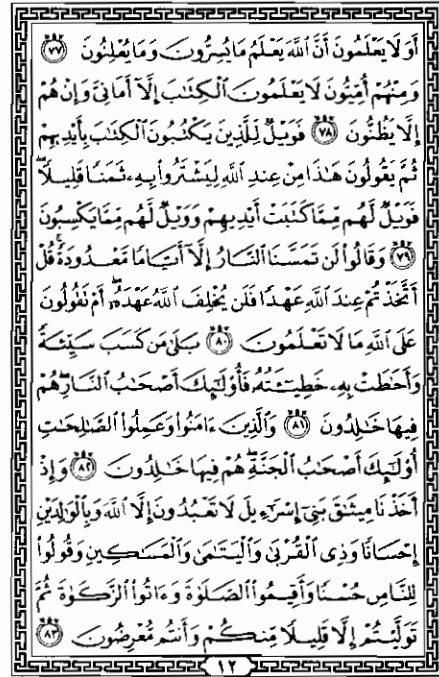 أَوَلَا يَعْلَمُونَ أَنَّ ٱللَّهَ يَعْلَمُ مَا يُسِرُّونَ وَمَا يُعْلِنُونَ ٧٧
وَمِنْهُمْ أُمِّيُّونَ لَا يَعْلَمُونَ ٱلْكِتَٰبَ إِلَّآ أَمَانِيَّ وَإِنْ هُمْ
إِلَّا يَظُنُّونَ ٧٨ فَوَيْلٌ لِّلَّذِينَ يَكْتُبُونَ ٱلْكِتَٰبَ بِأَيْدِيهِمْ
ثُمَّ يَقُولُونَ هَٰذَا مِنْ عِندِ ٱللَّهِ لِيَشْتَرُوا۟ بِهِۦ ثَمَنًا قَلِيلًا ۖ
فَوَيْلٌ لَّهُم مِّمَّا كَتَبَتْ أَيْدِيهِمْ وَوَيْلٌ لَّهُم مِّمَّا يَكْسِبُونَ
٧٩ وَقَالُوا۟ لَن تَمَسَّنَا ٱلنَّارُ إِلَّآ أَيَّامًا مَّعْدُودَةً ۚ قُلْ
أَتَّخَذْتُمْ عِندَ ٱللَّهِ عَهْدًا فَلَن يُخْلِفَ ٱللَّهُ عَهْدَهُۥٓ ۖ أَمْ تَقُولُونَ
عَلَى ٱللَّهِ مَا لَا تَعْلَمُونَ ٨٠ بَلَىٰ مَن كَسَبَ سَيِّئَةً
وَأَحَٰطَتْ بِهِۦ خَطِيٓـَٔتُهُۥ فَأُو۟لَٰٓئِكَ أَصْحَٰبُ ٱلنَّارِ ۖ هُمْ
فِيهَا خَٰلِدُونَ ٨١ وَٱلَّذِينَ ءَامَنُوا۟ وَعَمِلُوا۟ ٱلصَّٰلِحَٰتِ
أُو۟لَٰٓئِكَ أَصْحَٰبُ ٱلْجَنَّةِ ۖ هُمْ فِيهَا خَٰلِدُونَ ٨٢ وَإِذْ
أَخَذْنَا مِيثَٰقَ بَنِىٓ إِسْرَٰٓءِيلَ لَا تَعْبُدُونَ إِلَّا ٱللَّهَ وَبِٱلْوَٰلِدَيْنِ
إِحْسَانًا وَذِى ٱلْقُرْبَىٰ وَٱلْيَتَٰمَىٰ وَٱلْمَسَٰكِينِ وَقُولُوا۟
لِلنَّاسِ حُسْنًا وَأَقِيمُوا۟ ٱلصَّلَوٰةَ وَءَاتُوا۟ ٱلزَّكَوٰةَ ثُمَّ
تَوَلَّيْتُمْ إِلَّا قَلِيلًا مِّنكُمْ وَأَنتُم مُّعْرِضُونَ ٨٣
١٢